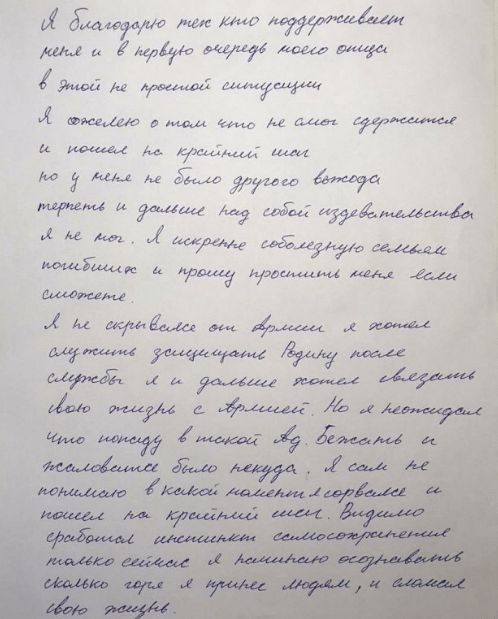 Я благодарю тех кто поддерживает
меня и в первую очередь моего отца
в этой не простой ситуации
Я сожелею о том что не смог сдержатся
и пошел на крайний шаг
но у меня не было другого выхода
терпеть и дальше над собой издевательства
я не мог. Я искренне соболезную семьям
погибших и прошу простить меня если
сможете.
Я не скрывался от Армии я хотел
служить защищать Родину после
службы я и дальше хотел связать
свою жизнь с Армией. Но я неожидал
что попаду в такой Ад. Бежать и
жаловатся было некуда. Я сам не
понимаю в какой момент я сорвался и
пошел на крайний шаг. Видимо
сработал инстинкт самосохранения
только сейчас я начинаю осознавать
сколько горя я принес людям, и сломал
свою жизнь.